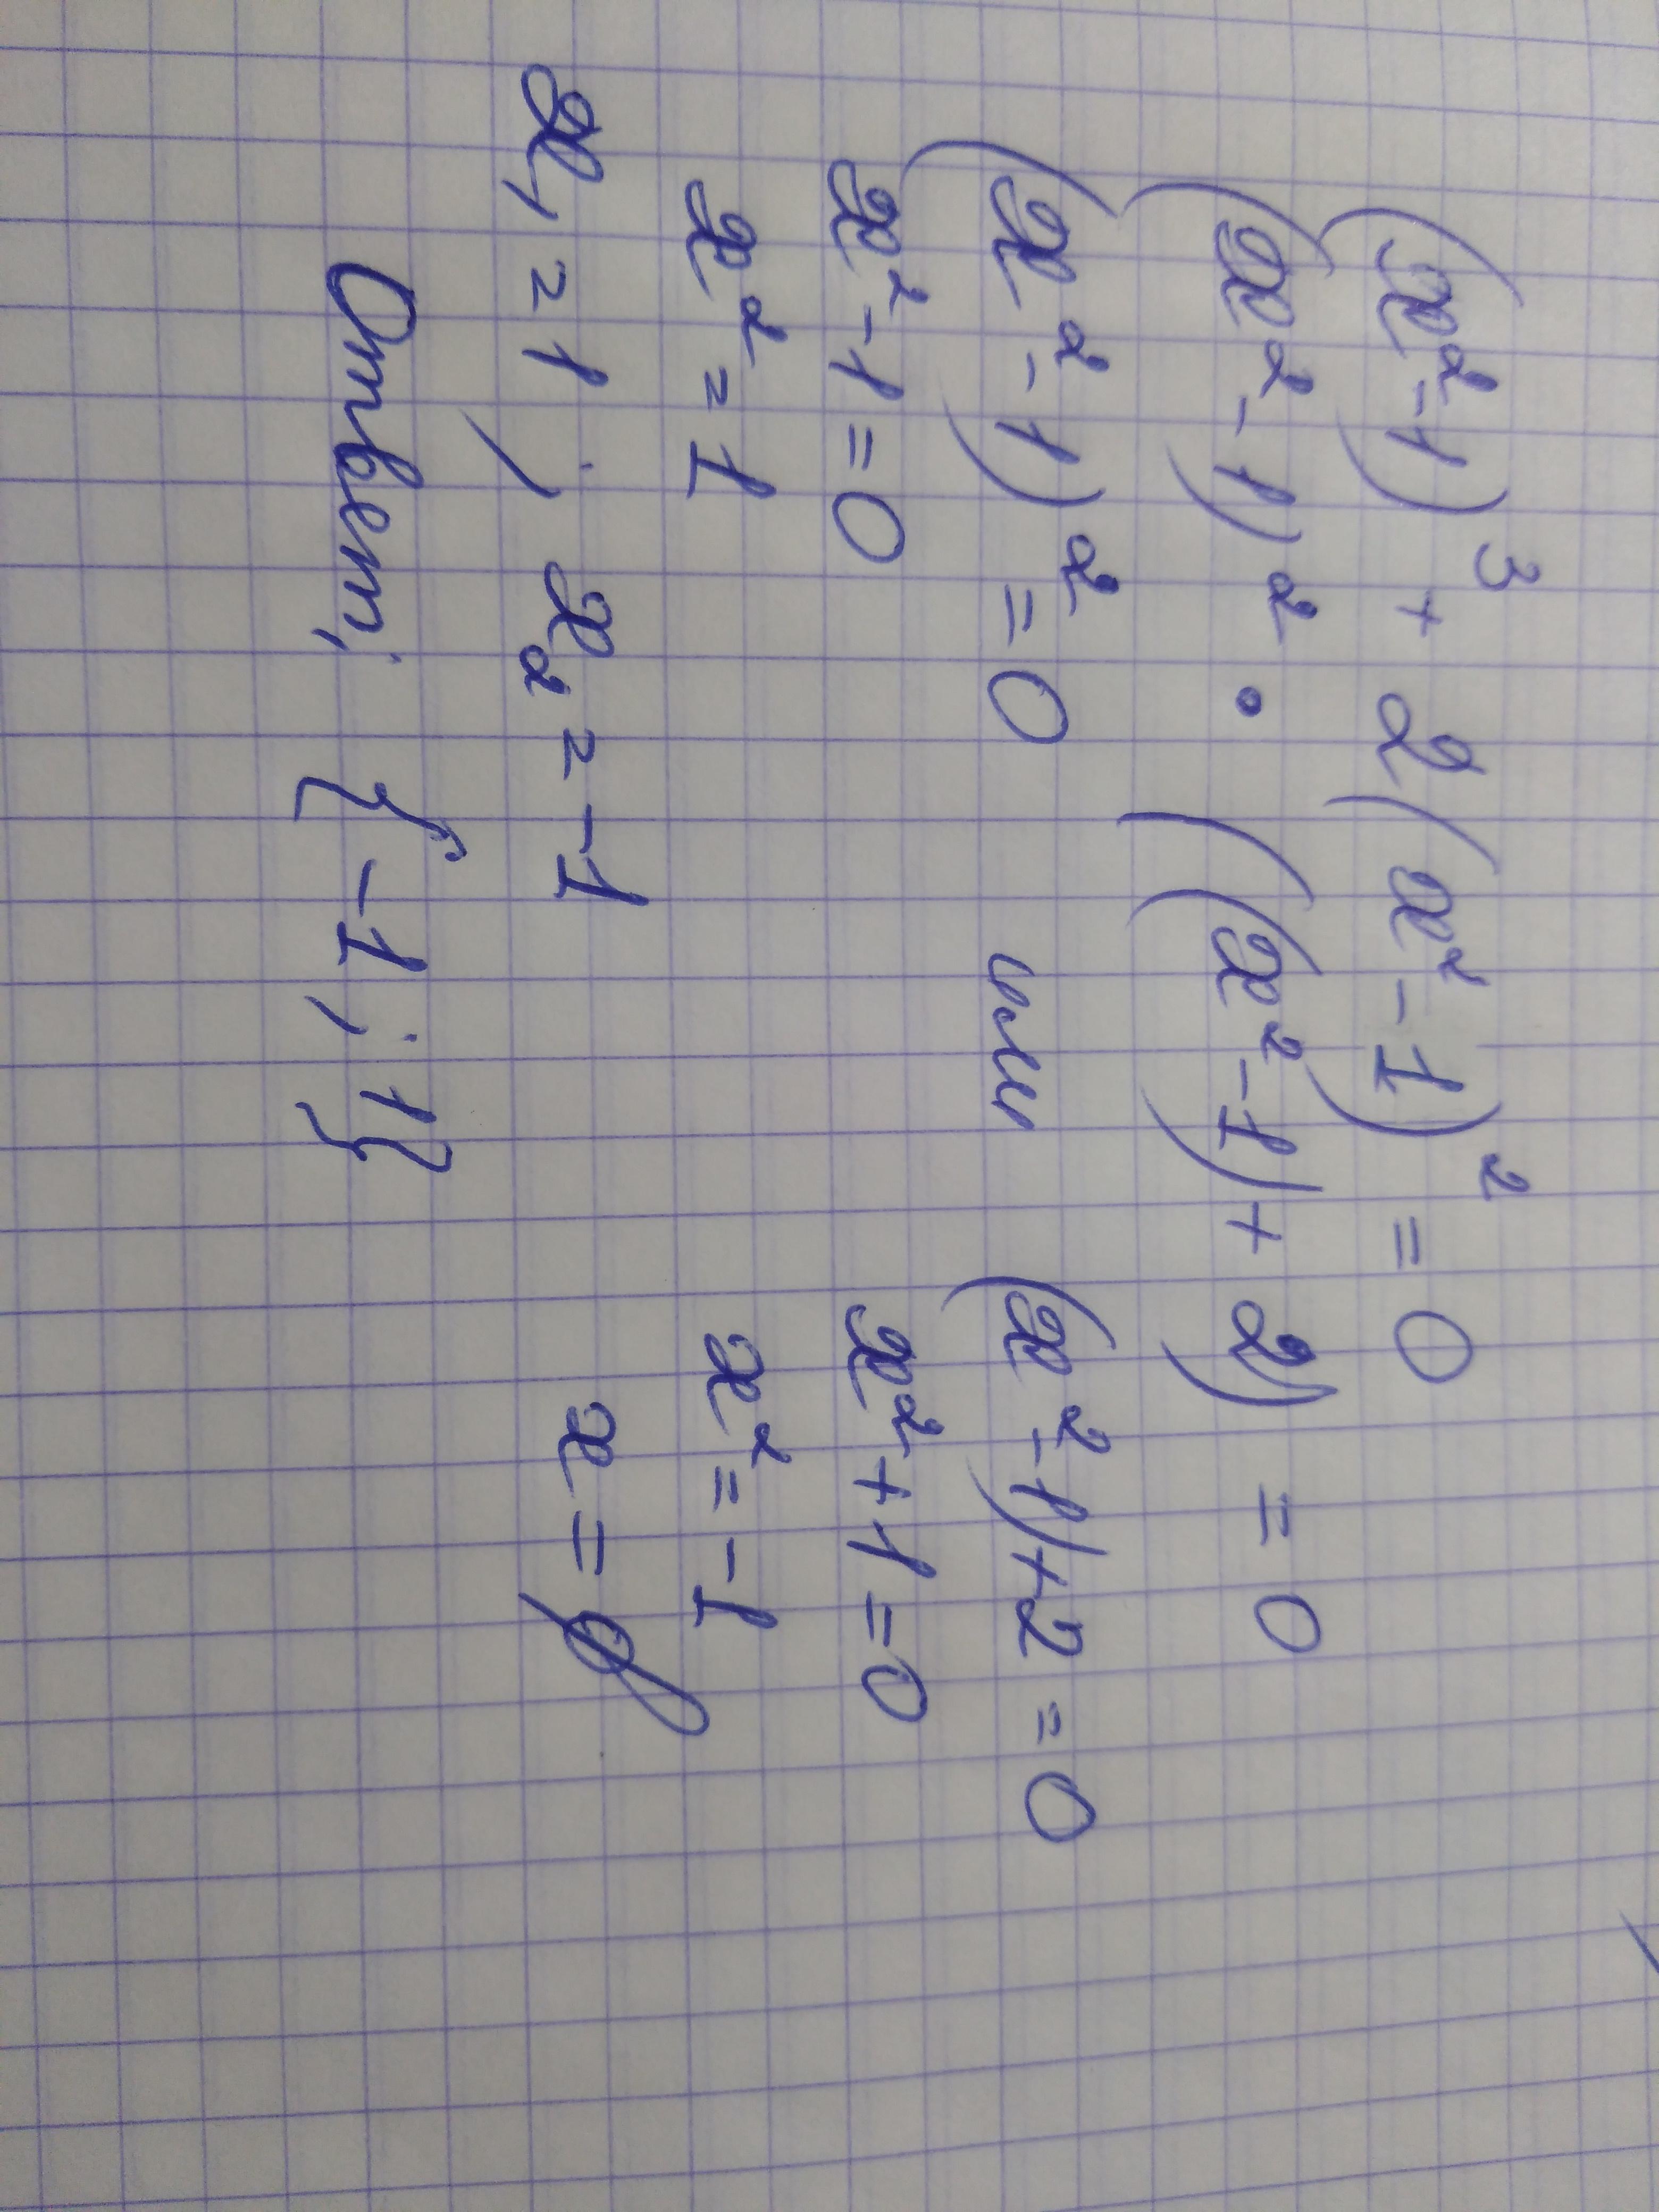 (x²-1)³ + 2(x²-1)² = 0
(x²-1)² · ((x²-1)+2) = 0
(x²-1)² = 0 или (x²-1)+2 = 0
x²-1 = 0 x²+1 = 0
x² = 1 x² = -1
x₁ = 1; x₂ = -1 x = ∅
Ответ: {-1; 1}